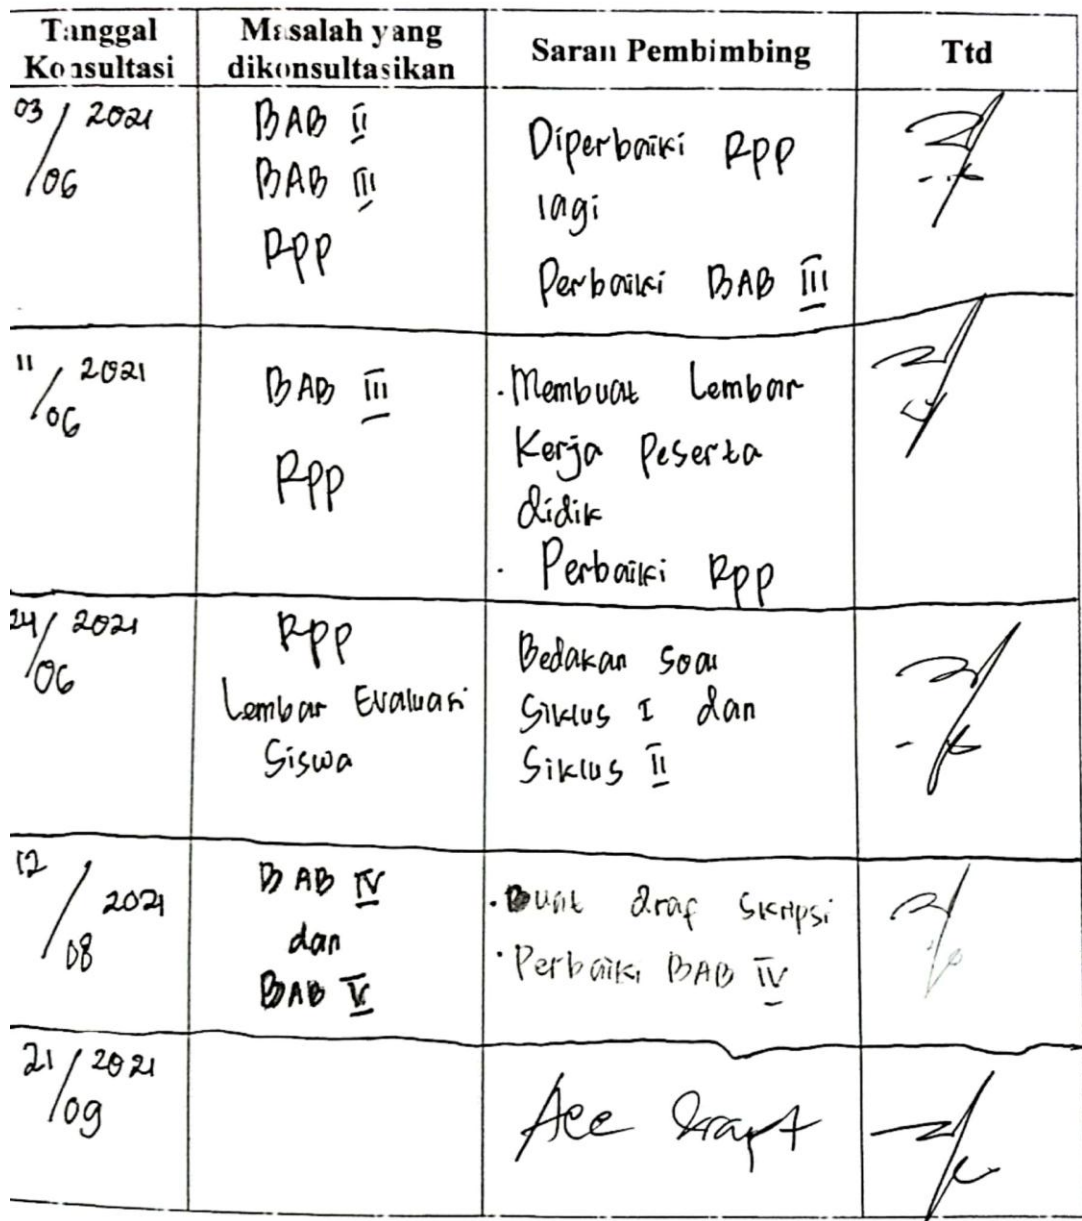 Tanggal Konsultasi
Masalah yang dikonsultasikan
Saran Pembimbing
Ttd
03/06 2021
BAB II
BAB III
RPP
Diperbaiki RPP
lagi
Perbaiki BAB III
11/06 2021
BAB III
RPP
. Membuat Lembar
Kerja Peserta
didik
. Perbaiki RPP
24/06 2021
RPP
Lembar Evaluasi
Siswa
Bedakan Soal
Siklus I dan
Siklus II
12/08 2021
BAB IV
dan
BAB V
. Buat draf Skripsi
. Perbaiki BAB IV
21/09 2021
Acc Drapt